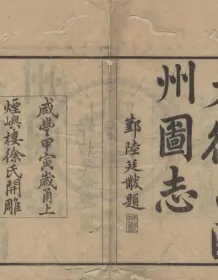 州圖志
鄞陸廷黻題
咸豐甲寅歲甬上
煙嶼樓徐氏開雕